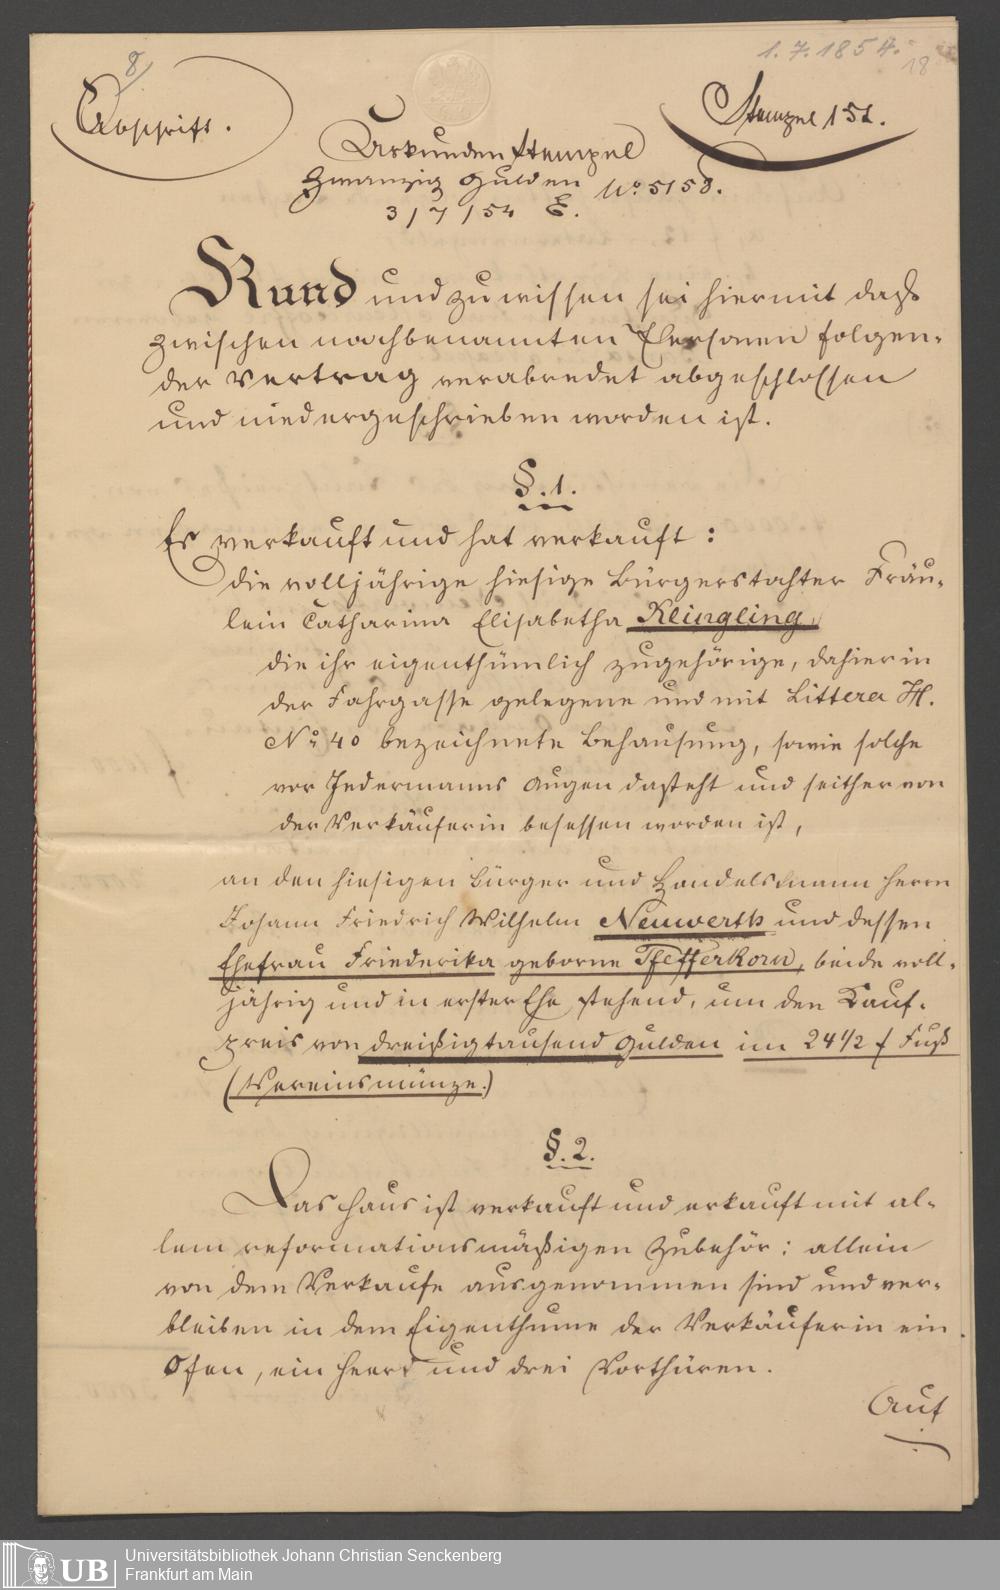 8/
1. 7. 1854.
18
Abschrift.
Stempel 15x.
Urkunden Stempel
Zwanzig Gulden No 5158.
3/7/54 E.
Kund und zu wissen sei hiermit daß
zwischen nachbenannten Personen folgen-
der Vertrag verabredet abgeschlossen
und niedergeschrieben worden ist.
§.1.
Es verkauft und hat verkauft:
die volljährige hiesige Bürgerstochter Fräu-
lein Catharina Elisabetha Klingling,
die ihr eigenthümlich zugehörige, dahier in
der Fahrgasse gelegene und mit Littera H.
No 40 bezeichnete Behausung, sowie solche
vor Jedermanns Augen dasteht und seither von
der Verkäuferin besessen worden ist,
an den hiesigen Bürger und Handelsmann Herrn
Johann Friedrich Wilhelm Neuwerth und dessen
Ehefrau Friederika geborne Pfefferkorn, beide voll-
jährig und in erster Ehe stehend, um den Kauf-
preis von dreißigtausend Gulden im 24 1/2 f Fuß
(Vereinsmünze.)
§.2.
Das Haus ist verkauft und erkauft mit al-
lem reformationsmäßigen Zubehör: allein
von dem Verkaufe ausgenommen sind und ver-
bleiben in dem Eigenthume der Verkäuferin ein
Ofen, ein Heerd und drei Vorthüren.
Auf
UB
Universitätsbibliothek Johann Christian Senckenberg
Frankfurt am Main